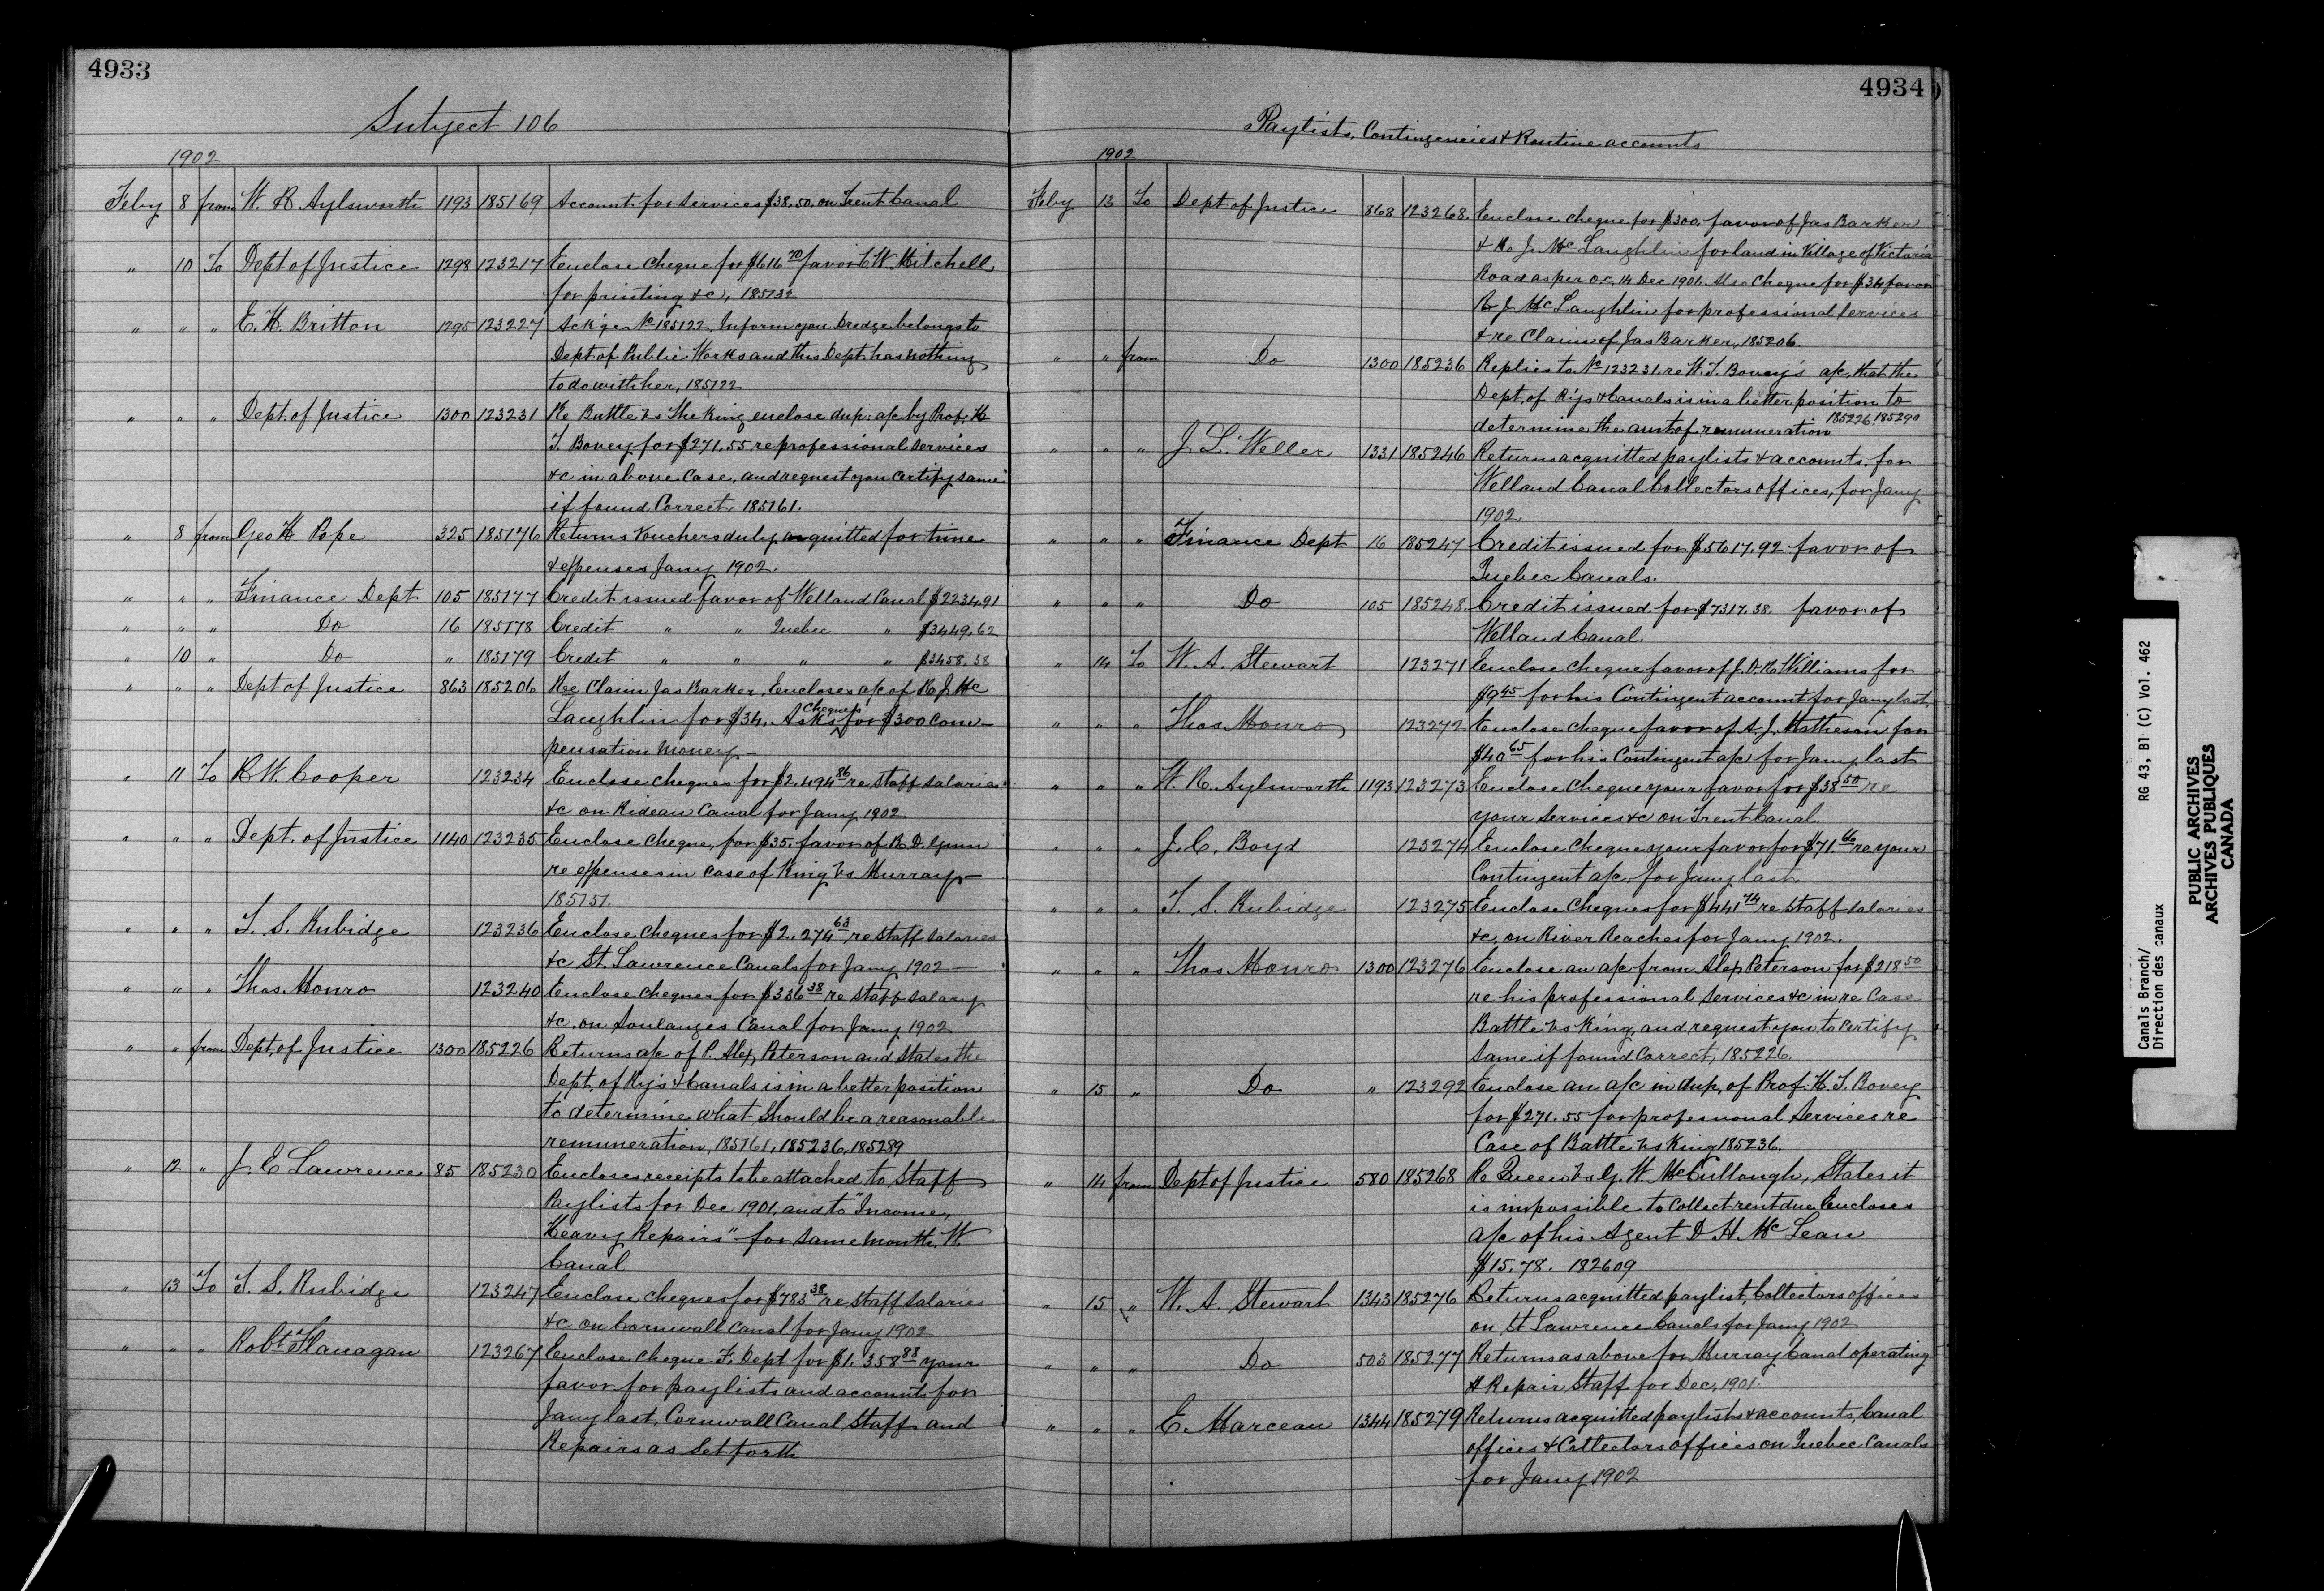 4933
Subject 106
1902
Feby 8 from W. R. Aylsworth 1193 185169 Account for Services $38.50. on Trent Canal
" 10 To Dept of Justice 1298 123217 Enclose cheque for $616 70 favor C W. Mitchell
for printing &c, 185132
" " " E. K. Britton 1295 123227 Ack'ge No 185122. Inform you Dredge belongs to
Dept of Public Works and this Dept. has nothing
to do with her, 185122
" " " Dept. of Justice 1300 123231 Re Battle vs The King enclose dup: a/c by Prof. H
T. Bovey for $271.55 re professional services
&c in above Case, and request you certify same
if found Correct 185161.
" 8 from Geo H Pope 325 185176 Returns Vouchers duly acquitted for time
& expenses Jany 1902.
" " " Finance Dept 105 185177 Credit issued favor of Welland Canal $2234.91
" " " Do 16 185178 Credit " " Quebec " $3449.62
" 10 " Do " 185179 Credit " " " " $3458.38
" " " Dept of Justice 863 185206 Ree Claim Jas Barker. Encloses a/c of R. J. Mc
Laughlin for $34. Asks cheques for $300 Com-
pensation Money-
" 11 To R W. Cooper 123234 Enclose cheques for $2.494 86 re Staff Salaries
&c on Rideau Canal for Jany 1902
" " " Dept. of Justice 1140 123235 Enclose cheque, for $35. favor of R. D. Gunn
re expenses in case of King vs Murray-
185151.
" " " T. S. Rubidge 123236 Enclose cheques for $2.274 63 re Staff Salaries
&c St. Lawrence Canals for Jany 1902-
" " " Thos. Monro 123240 Enclose cheques for $336 38 re Staff Salary
&c. on Soulanges Canal for Jany 1902
" " from Dept. of Justice 1300 185226 Returns a/c of P. Alex, Peterson and States the
Dept. of Ry's & Canals is in a better position
to determine what should be a reasonable
remuneration, 185161, 185236, 185289
" 12 " J. E Lawrence 85 185230 Encloses receipts to be attached to Staff
Paylists for Dec 1901. and to "Income,
Heavy Repairs" for same Month. W.
Canal
" 13 To T. S. Rubidge 123247 Enclose cheques for $783 38 re Staff Salaries
&c on Cornwall Canal for Jany 1902
" " " Robt Flanagan 123267 Enclose cheque F. Dept for $1.358 88 your
favor for paylists and accounts for
Jany last, Cornwall Canal Staff and
Repairs as Set forth
4934
Paylists, Contingencies & Routine accounts
1902
Feby 13 To Dept of Justice 868 123268. Enclose cheque for $300. favor of Jas Barker
& R. J. McLaughlin for land in Village of Victoria
Road as per o.c. 14 Dec 1901. Also Cheque for $34 favor
R J McLaughlin for professional Services
& re Claim of Jas Barker, 185206.
" " from Do 1300 185236 Replies to No 123231. re H. T. Bovey's a/c, that the
Dept. of Rys & Canals is in a better position to
determine the amt of remuneration 185226, 185290
" " " J L. Weller 1331 185246 Returns acquitted paylists & accounts. for
Welland Canal Collectors offices, for Jany
1902.
" " " Finance Dept 16 185247 Credit issued for $5617.92 favor of
Quebec Canals.
" " " Do 105 185248. Credit issued for $7317.38. favor of
Welland Canal.
" 14 To W. A. Stewart 123271 Enclose cheque favor of J. D. R Williams for
$9 45 for his Contingent account for Jany last
" " " Thos. Monro 123272 Enclose cheque favor of A. J. Matheson for
$40 65 for his Contingent a/c for Jany last
" " " W. R. Aylsworth 1193 123273 Enclose cheque your favor for $38 50 re
your Services &c on Trent Canal.
" " " J. C. Boyd 123274 Enclose cheque your favor for $71. re your
Contingent a/c for Jany last.
" " " T. S. Rubidge 123275 Enclose Cheques for $441 74 re Staff Salaries
&c. on River Reaches for Jany 1902.
" " " Thos. Monro 1300 123276 Enclose an a/c from Alex Peterson for $218 50
re his professional Services &c in re Case
Battle vs King, and request you to certify
same if found Correct, 185226.
" 15 " Do " 123292 Enclose an a/c in dup, of Prof. H. T. Bovey
for $271.55 for professional Services re
Case of Battle vs King 185236.
" 14 from Dept of Justice 580 185268 Re Queen vs G. W. McCullough, States it
is impossible to collect rent due Encloses
a/c of his Agent D H. McLean
$15.78. 182609
" 15 " W. A. Stewart 1343 185276 Returns acquitted paylist, Collectors offices
on St Lawrence Canals for Jany 1902
" " " Do 503 185277 Returns as above for Murray Canal operating
& Repair Staff for Dec, 1901.
" " " E. Marceau 1344 185279 Returns acquitted paylists & accounts, Canal
offices & Collectors offices on Quebec Canals
for Jany 1902
Canals Branch/ RG 43, B1 (C) Vol. 462
Direction des canaux
PUBLIC ARCHIVES
ARCHIVES PUBLIQUES
CANADA